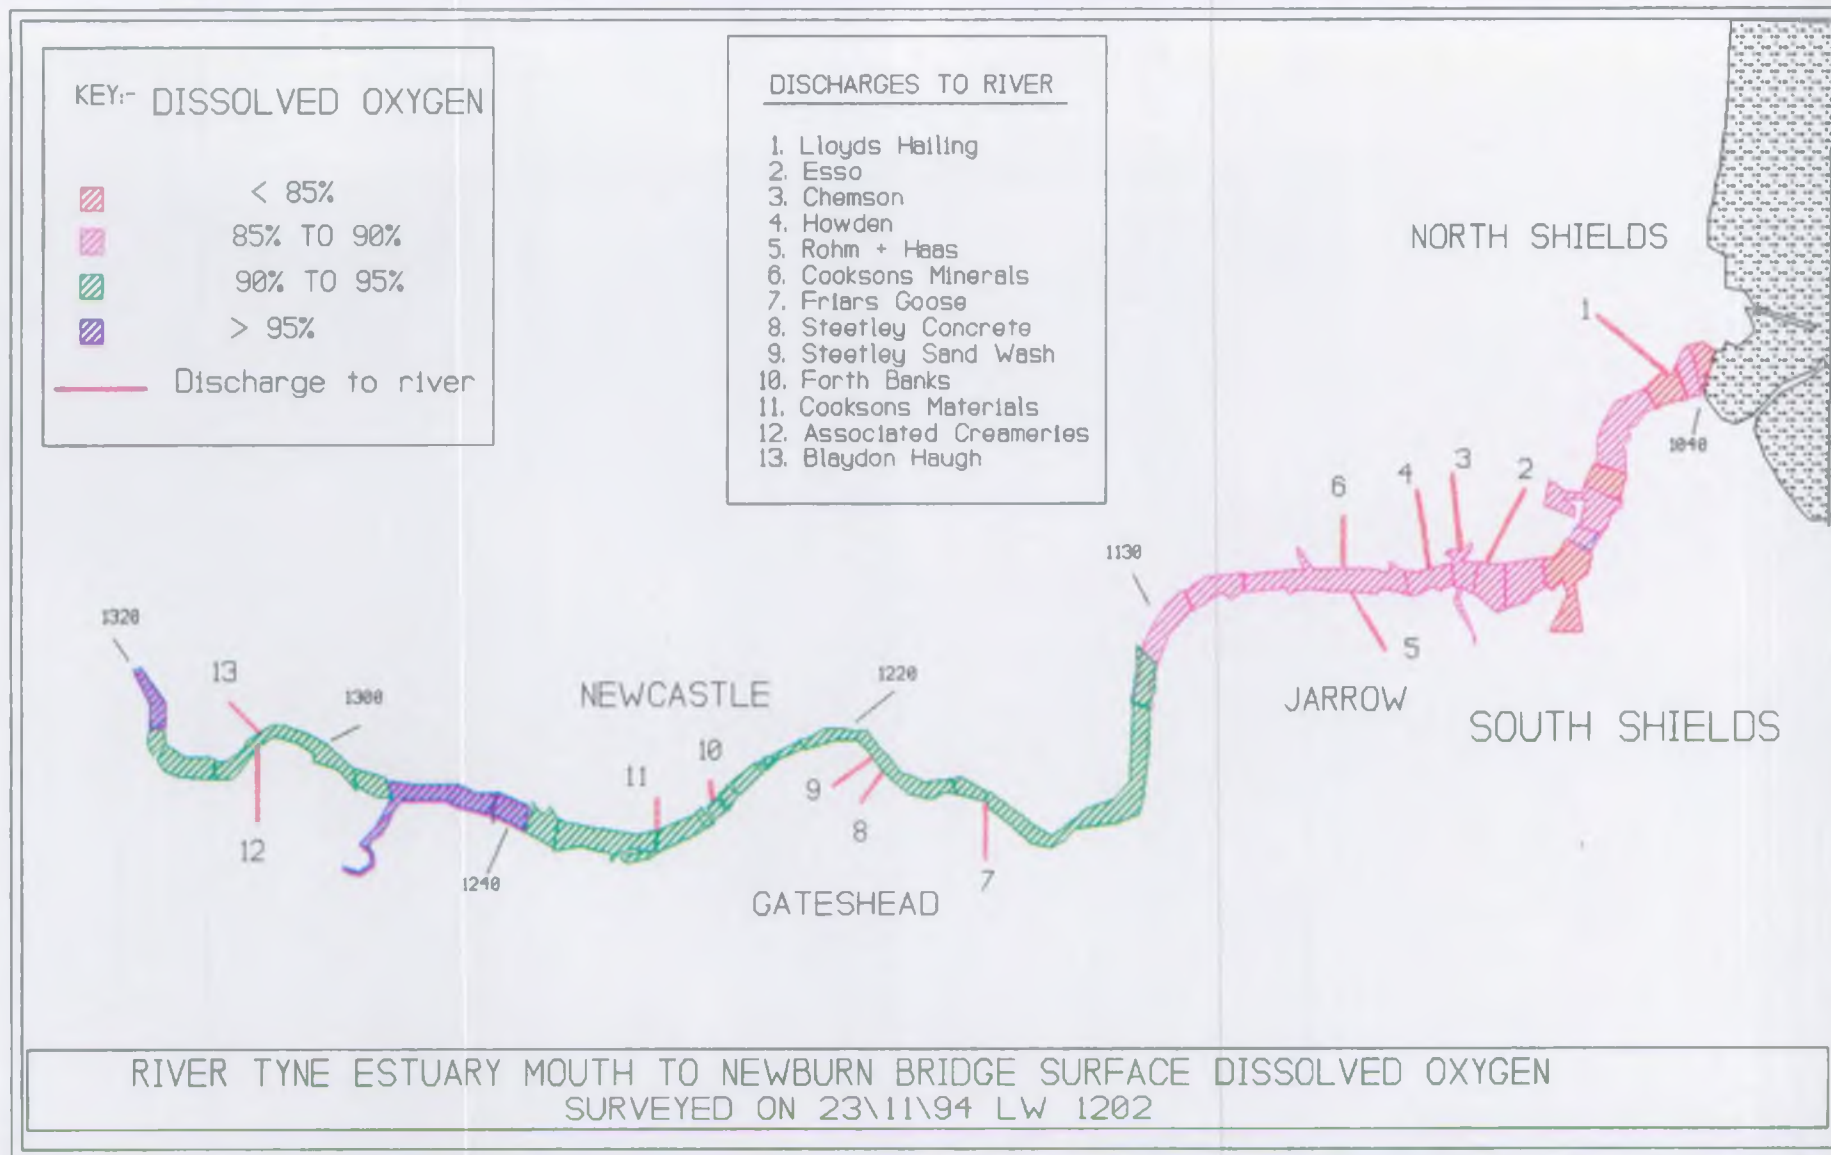 KEY:- DISSOLVED OXYGEN
< 85%
85% TO 90%
90% TO 95%
> 95%
Discharge to river
DISCHARGES TO RIVER
1. Lloyds Hailing
2. Esso
3. Chemson
4. Howden
5. Rohm + Haas
6. Cooksons Minerals
7. Friars Goose
8. Steetley Concrete
9. Steetley Sand Wash
10. Forth Banks
11. Cooksons Materials
12. Associated Creameries
13. Blaydon Haugh
NORTH SHIELDS
1
1040
3
2
4
6
1130
5
JARROW
SOUTH SHIELDS
1320
13
1300
NEWCASTLE
1220
10
11
9
8
12
1240
7
GATESHEAD
RIVER TYNE ESTUARY MOUTH TO NEWBURN BRIDGE SURFACE DISSOLVED OXYGEN
SURVEYED ON 23\11\94 LW 1202